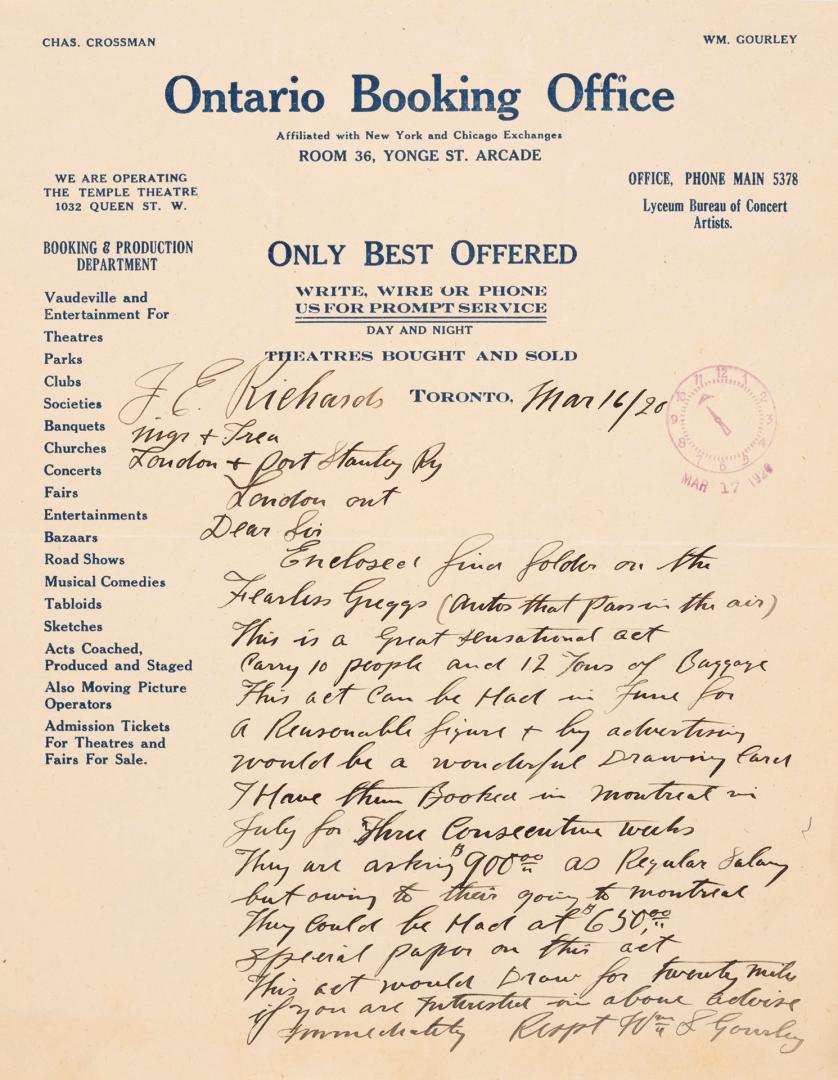 CHAS. CROSSMAN
WM. GOURLEY
Ontario Booking Office
Affiliated with New York and Chicago Exchanges
ROOM 36, YONGE ST. ARCADE
WE ARE OPERATING
THE TEMPLE THEATRE
1032 QUEEN ST. W.
OFFICE, PHONE MAIN 5378
Lyceum Bureau of Concert
Artists.
BOOKING & PRODUCTION
DEPARTMENT
ONLY BEST OFFERED
WRITE, WIRE OR PHONE
US FOR PROMPT SERVICE
DAY AND NIGHT
THEATRES BOUGHT AND SOLD
Vaudeville and
Entertainment For
Theatres
Parks
Clubs
Societies
Banquets
Churches
Concerts
Fairs
Entertainments
Bazaars
Road Shows
Musical Comedies
Tabloids
Sketches
Acts Coached,
Produced and Staged
Also Moving Picture
Operators
Admission Tickets
For Theatres and
Fairs For Sale.
TORONTO, Mar 16/20
12 1 2 3 4 5 6 7 8 9 10 11
MAR 17 1920
J. E. Richards
Mgr + Trea
London + Port Stanley Ry
London Ont
Dear Sir
Enclosed find folder on the
Fearless Greggs (Autos that pass in the air)
This is a Great sensational act
Carry 10 people and 12 Tons of Baggage
This act Can be Had in June for
A Reasonable figure + by advertising
would be a wonderful Drawing Card
I Have them Booked in Montreal in
July for Three Consecutive weeks
They are asking $900.00 as Regular Salary
but owing to their going to Montreal
They Could be Had at $650.00
Special paper on this act
This act would Draw for twenty mils
if you are Interested in above advise
Immediately Respt Wm S Gourley